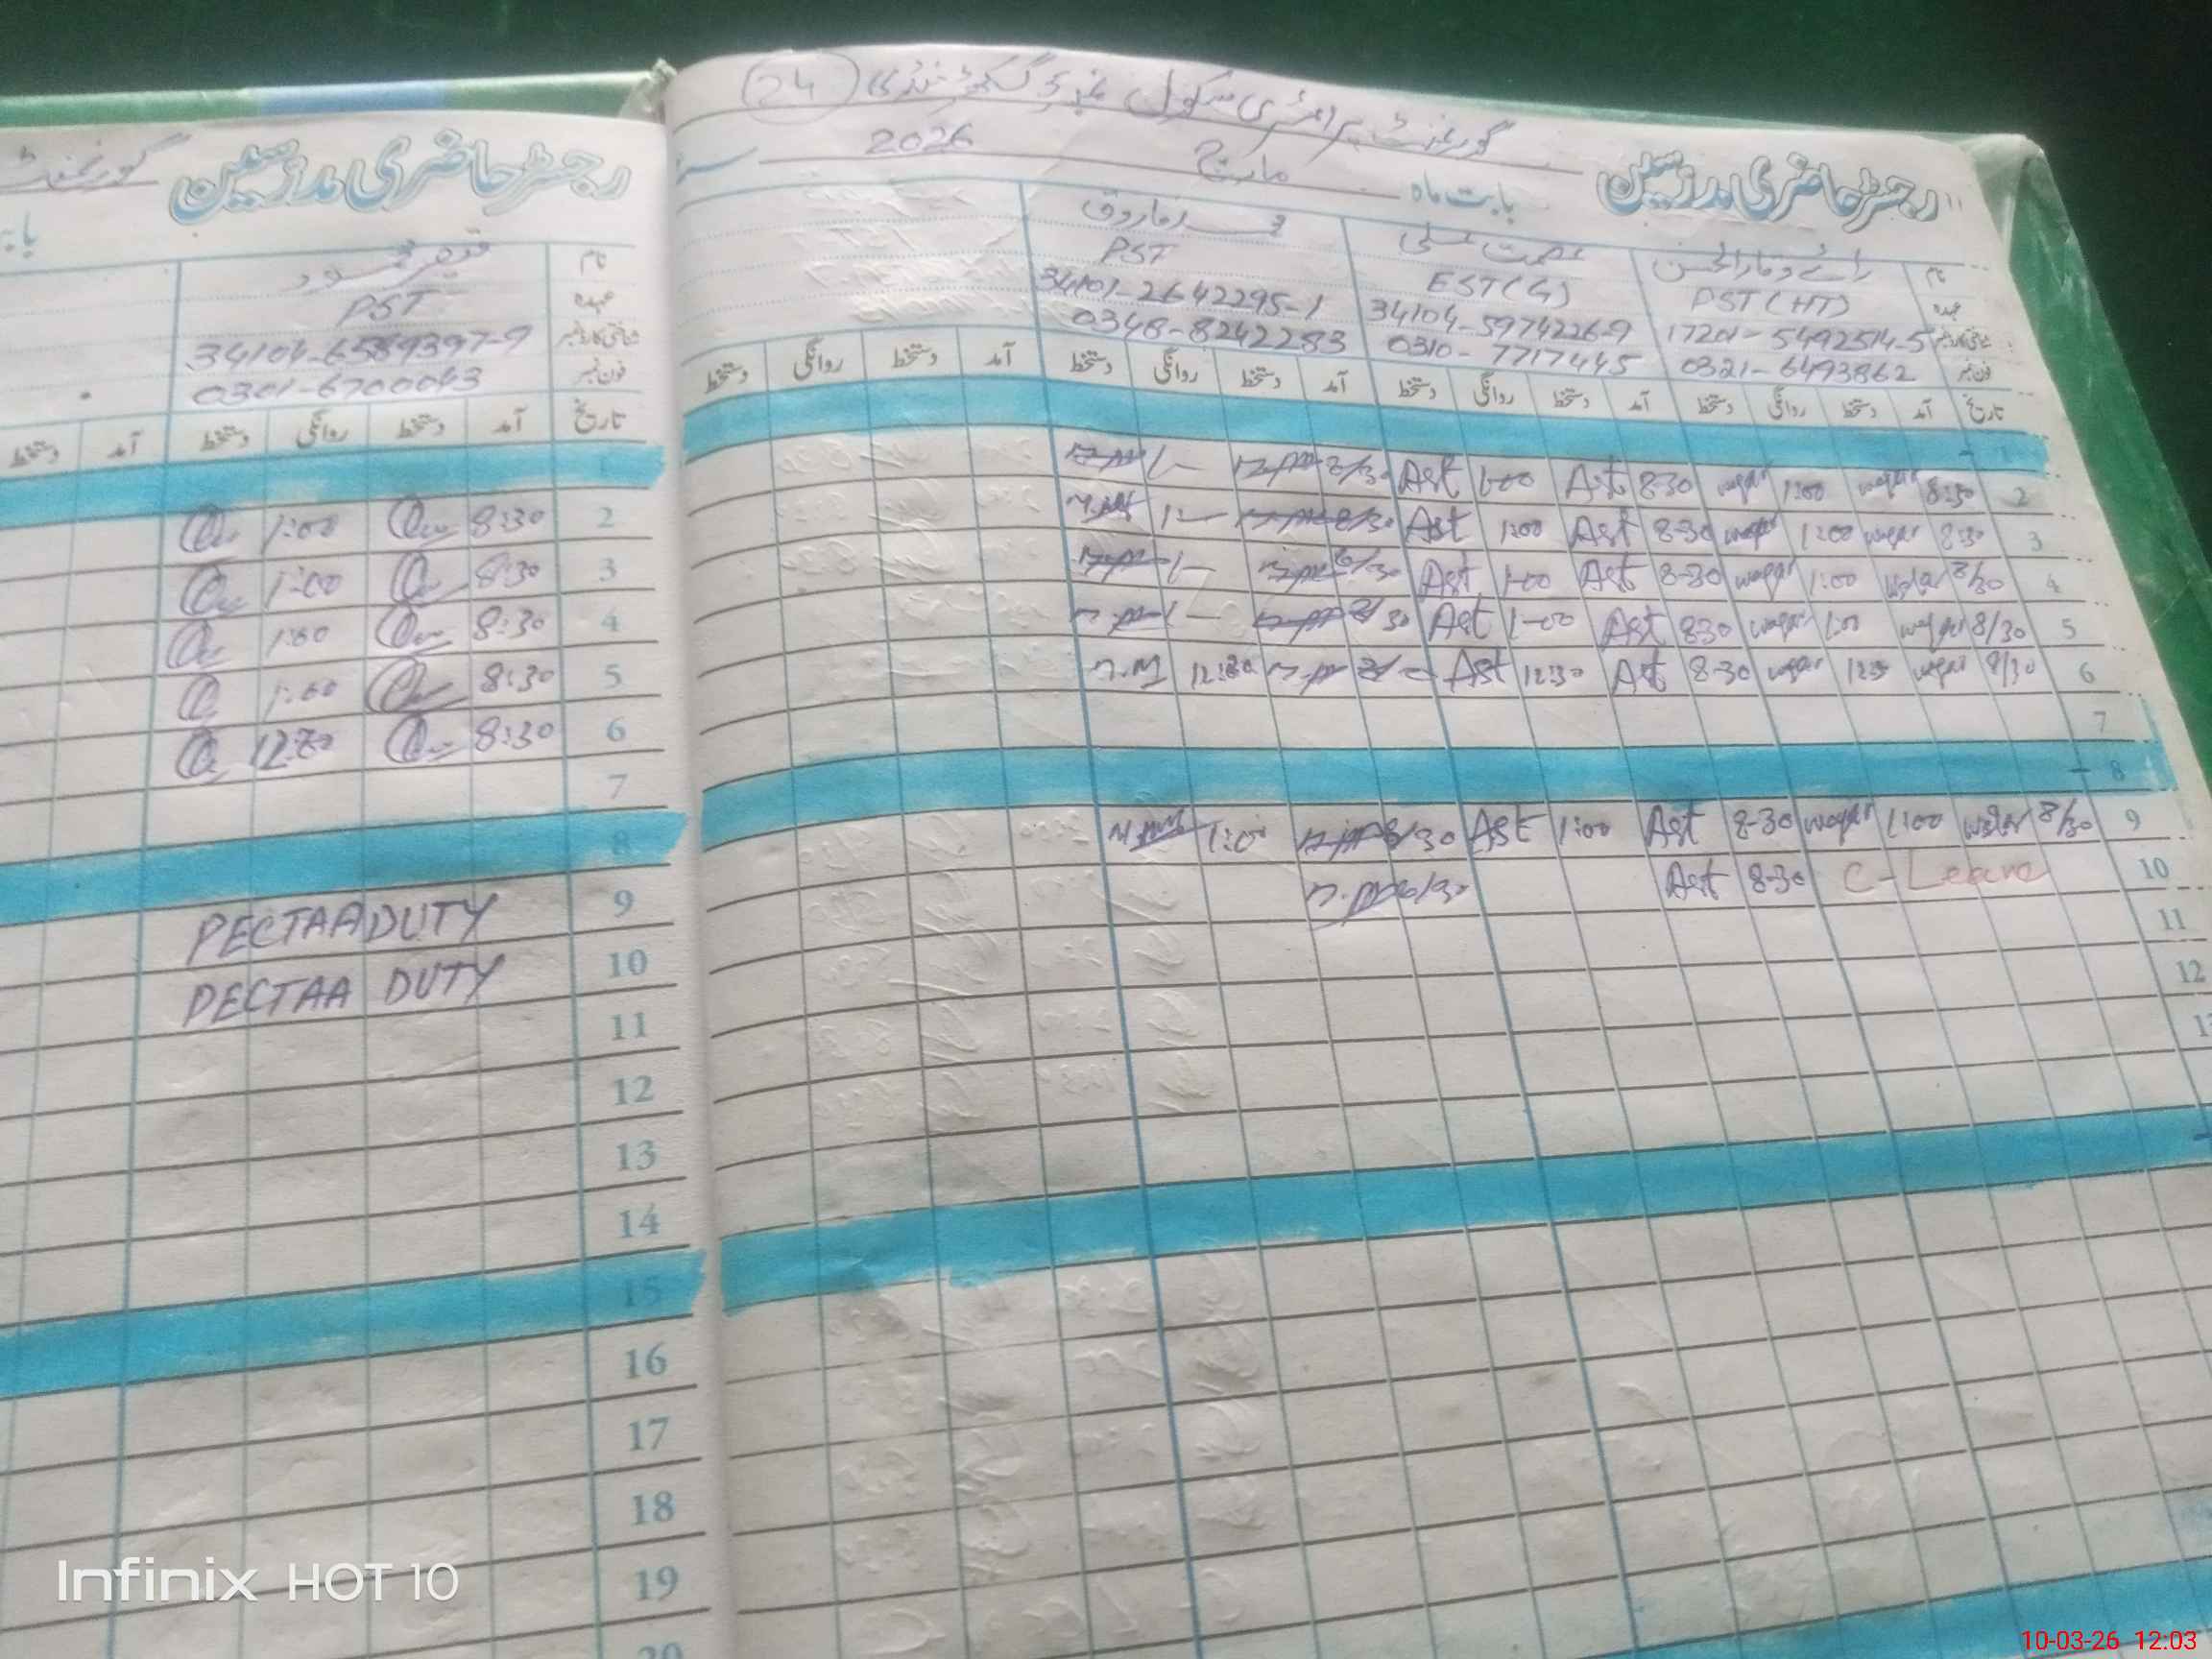 گورنمنٹ پرائمری سکول 24
رجسٹر حاضری مدرسین بابت ماہ مارچ 2026
نام
عہدہ PST (HT) EST (G) PST
شناختی کارڈ نمبر 17201-5492514-5 34104-5974226-9 34101-2642295-1
فون نمبر 0321-6493862 0310-7717445 0348-8242283
تاریخ آمد دستخط روانگی دستخط آمد دستخط روانگی دستخط آمد دستخط روانگی دستخط آمد دستخط روانگی دستخط
2 8:30 waqar 1:00 waqar 8-30 Ast 1-00 Ast 8/30 1-
3 8:30 waqar 1:00 waqar 8-30 Ast 1:00 Ast 8/30 1-
4 8/30 waqar 1:00 waqar 8-30 Ast 1-00 Ast 8/30 1-
5 8/30 waqar 1:00 waqar 8-30 Ast 1-00 Ast 8/30 1-
6 8/30 waqar waqar 8-30 Ast 12:30 Ast 12:30 n.m
7
8
9 8/30 waqar 1:00 waqar 8-30 Ast 1:00 Ast 8/30 1:00
10 C-Leave 8-30 Ast 8/30
11
12
رجسٹر حاضری مدرسین گورنمنٹ
نام
عہدہ PST
شناختی کارڈ نمبر 34104-6589397-9
فون نمبر 0301-6700043
تاریخ آمد دستخط روانگی دستخط آمد دستخط
1
2 8:30 1:00
3 8:30 1:00
4 8:30 1:00
5 8:30 1:00
6 8:30 12:30
7
8
9 PECTAA DUTY
10 PECTAA DUTY
11
12
13
14
15
16
17
18
19
20
Infinix HOT 10
10-03-26 12:03